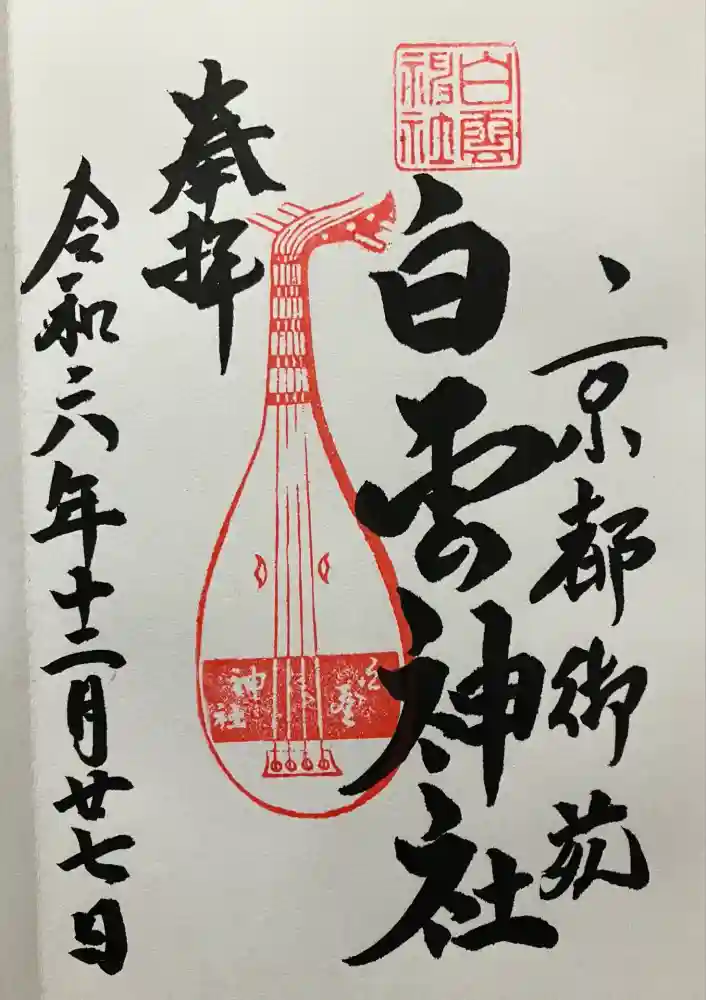 京都御苑
白雲神社
白雲神社
奉拝
令和六年十二月廿七日
神社